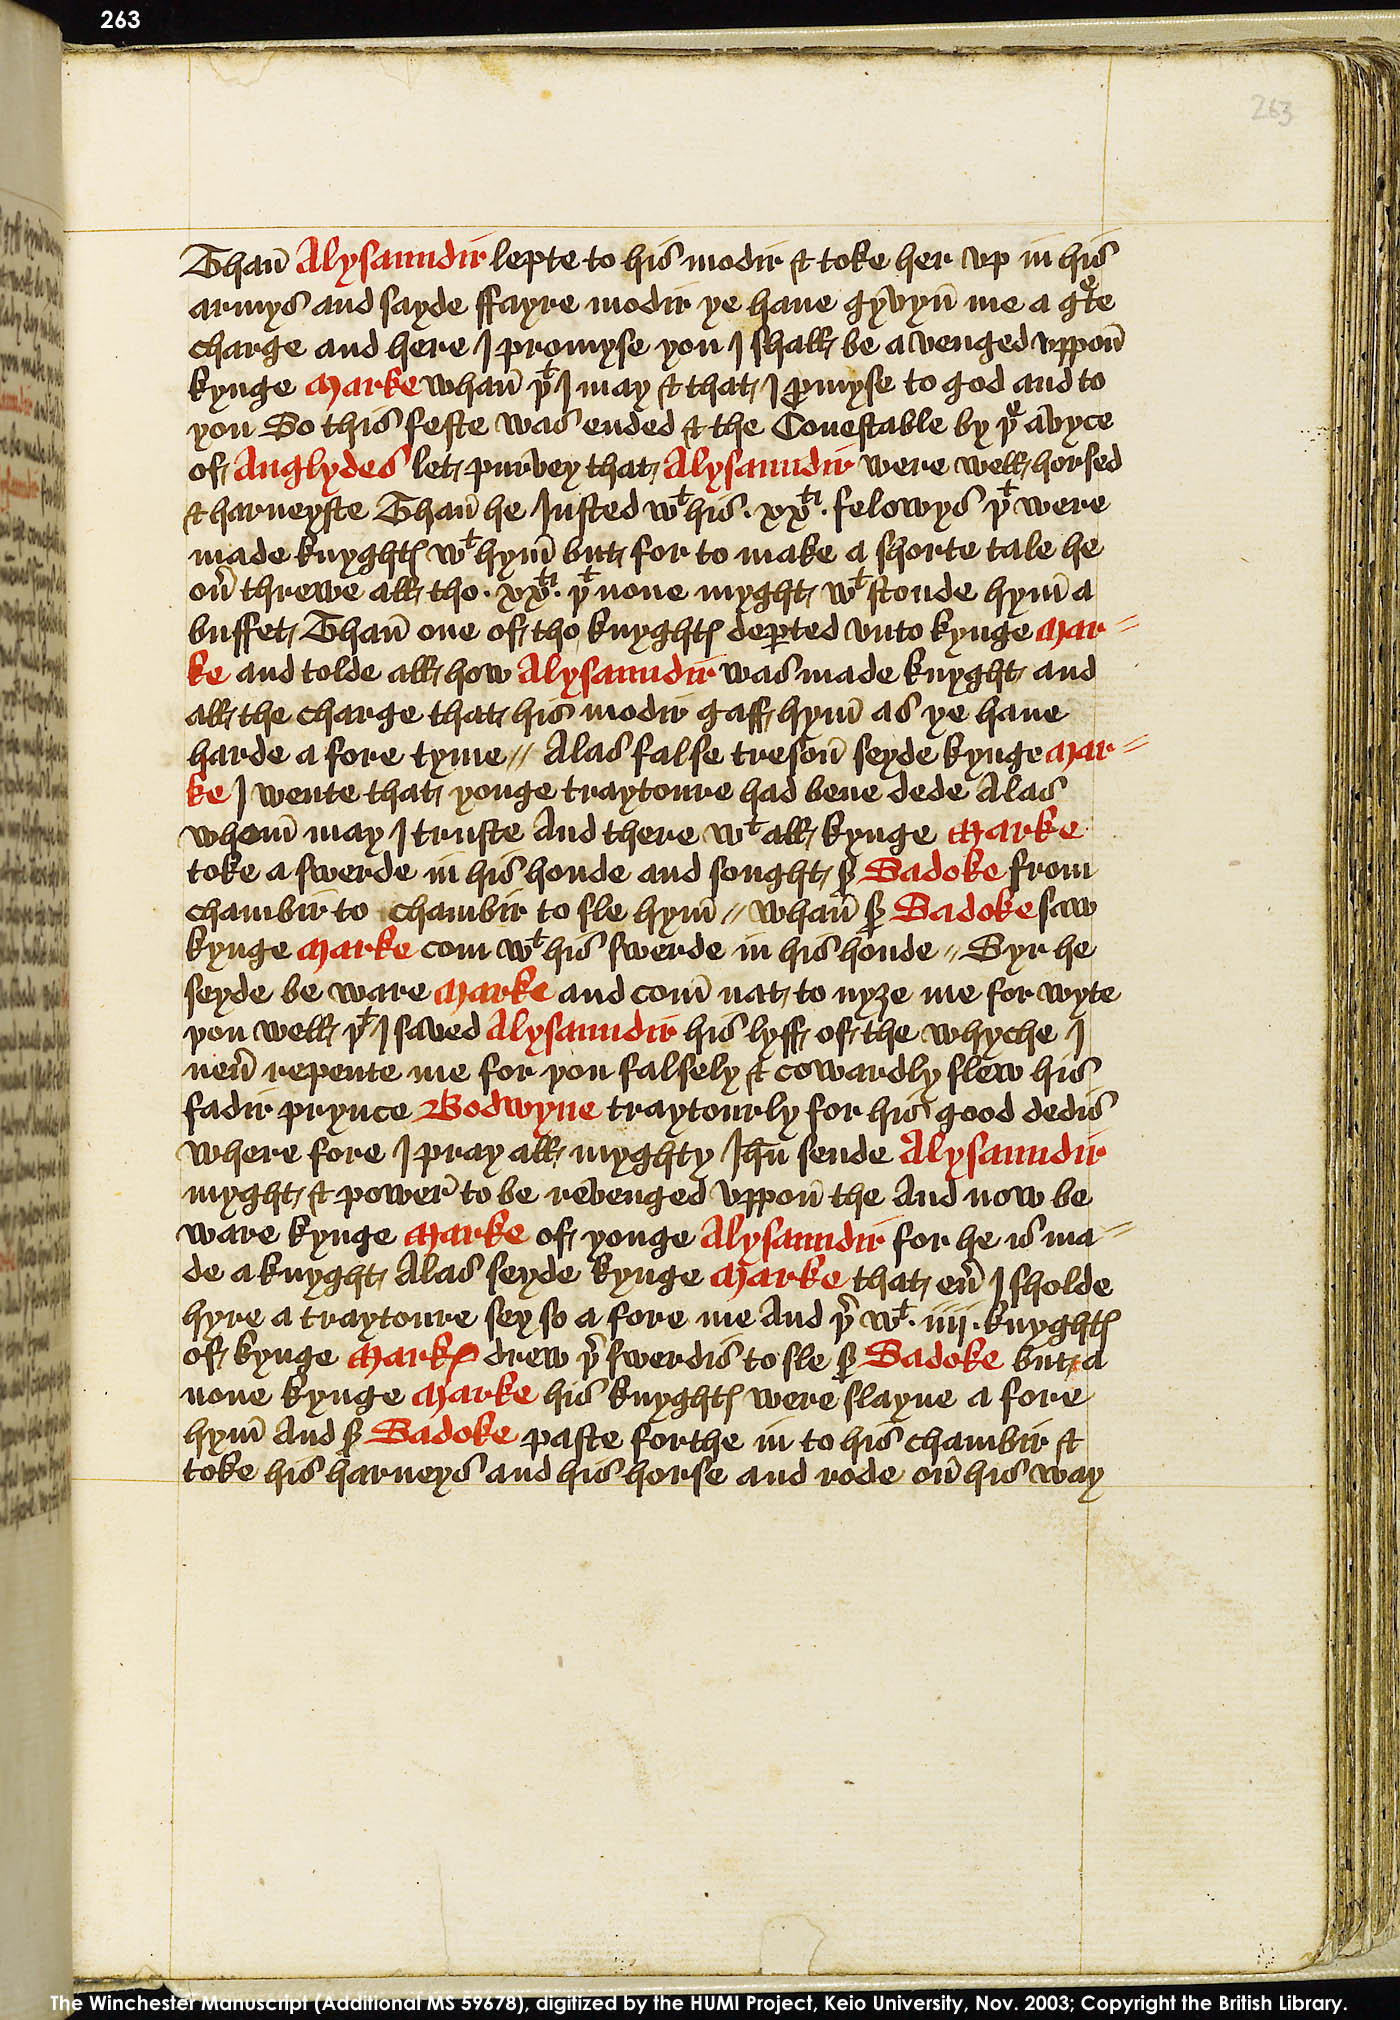 263
263
Thañ Alysaundir lepte to his modir & toke her vp in his
armys and sayde ffayre modir ye haue gyvyñ me a gᵉte
charge and here I promyse you I shall be avenged vppoñ
kynge Marke whañ þᵗ I may & that I ꝓmyse to god and to
you So this feste was ended & the Conestable by þᵉ avyce
of Anglydes let purvey that Alysaundir were well horsed
& harneyste Thañ he Iusted wᵗ his .xxᵗⁱ. felowys þᵗ were
made knyghtꝭ wᵗ hym̄ but for to make a shorte tale he
ou̓ threwe all tho .xxᵗⁱ. þᵗ none myght wᵗ stonde hym̄ a
buffet Thañ one of tho knyghtꝭ deꝑted vnto kynge Mar=
ke and tolde all how Alysaundir was made knyght and
all the charge that his modir gaff hym̄ as ye haue
harde a fore tyme // Alas false tresoñ seyde kynge Mar=
ke I wente that yonge traytoure had bene dede Alas
whom̄ may I truste And there wᵗ all kynge Marke
toke a swerde in his honde and sought sꝭ Sadoke from
chambir to chambir to sle hym̄ // whañ sꝭ Sadoke saw
kynge Marke com wᵗ his swerde in his honde // Syr he
seyde be ware Marke and com̄ nat to nyȝe me for wyte
you well þᵗ I saved Alysaundir his lyff of the whyche I
neu̓ repente me for you falsely & cowardly slew his
fadir prynce Bodwyne traytourly for his good dedis
where fore I pray all myghty Ihū sende Alysaundir
myght & power̓ to be revenged vppoñ the And now be
ware kynge Marke of yonge Alysaundir for he is ma=
de a knyght Alas seyde kynge Marke that eu̓ I sholde
hyre a traytoure sey so a fore me And þ̓ wᵗ .iiij. knyghtꝭ
of kynge Markꝭ drew þ̓ swerdis to sle sꝭ Sadoke but a
none kynge Marke his knyghtꝭ were slayne a fore
hym̄ And sꝭ Sadoke paste forthe in to his chambir &
toke his harneys and his horse and rode oñ his way
The Winchester Manuscript (Additional MS 59678), digitized by the HUMI Project, Keio University, Nov. 2003; Copyright the British Library.